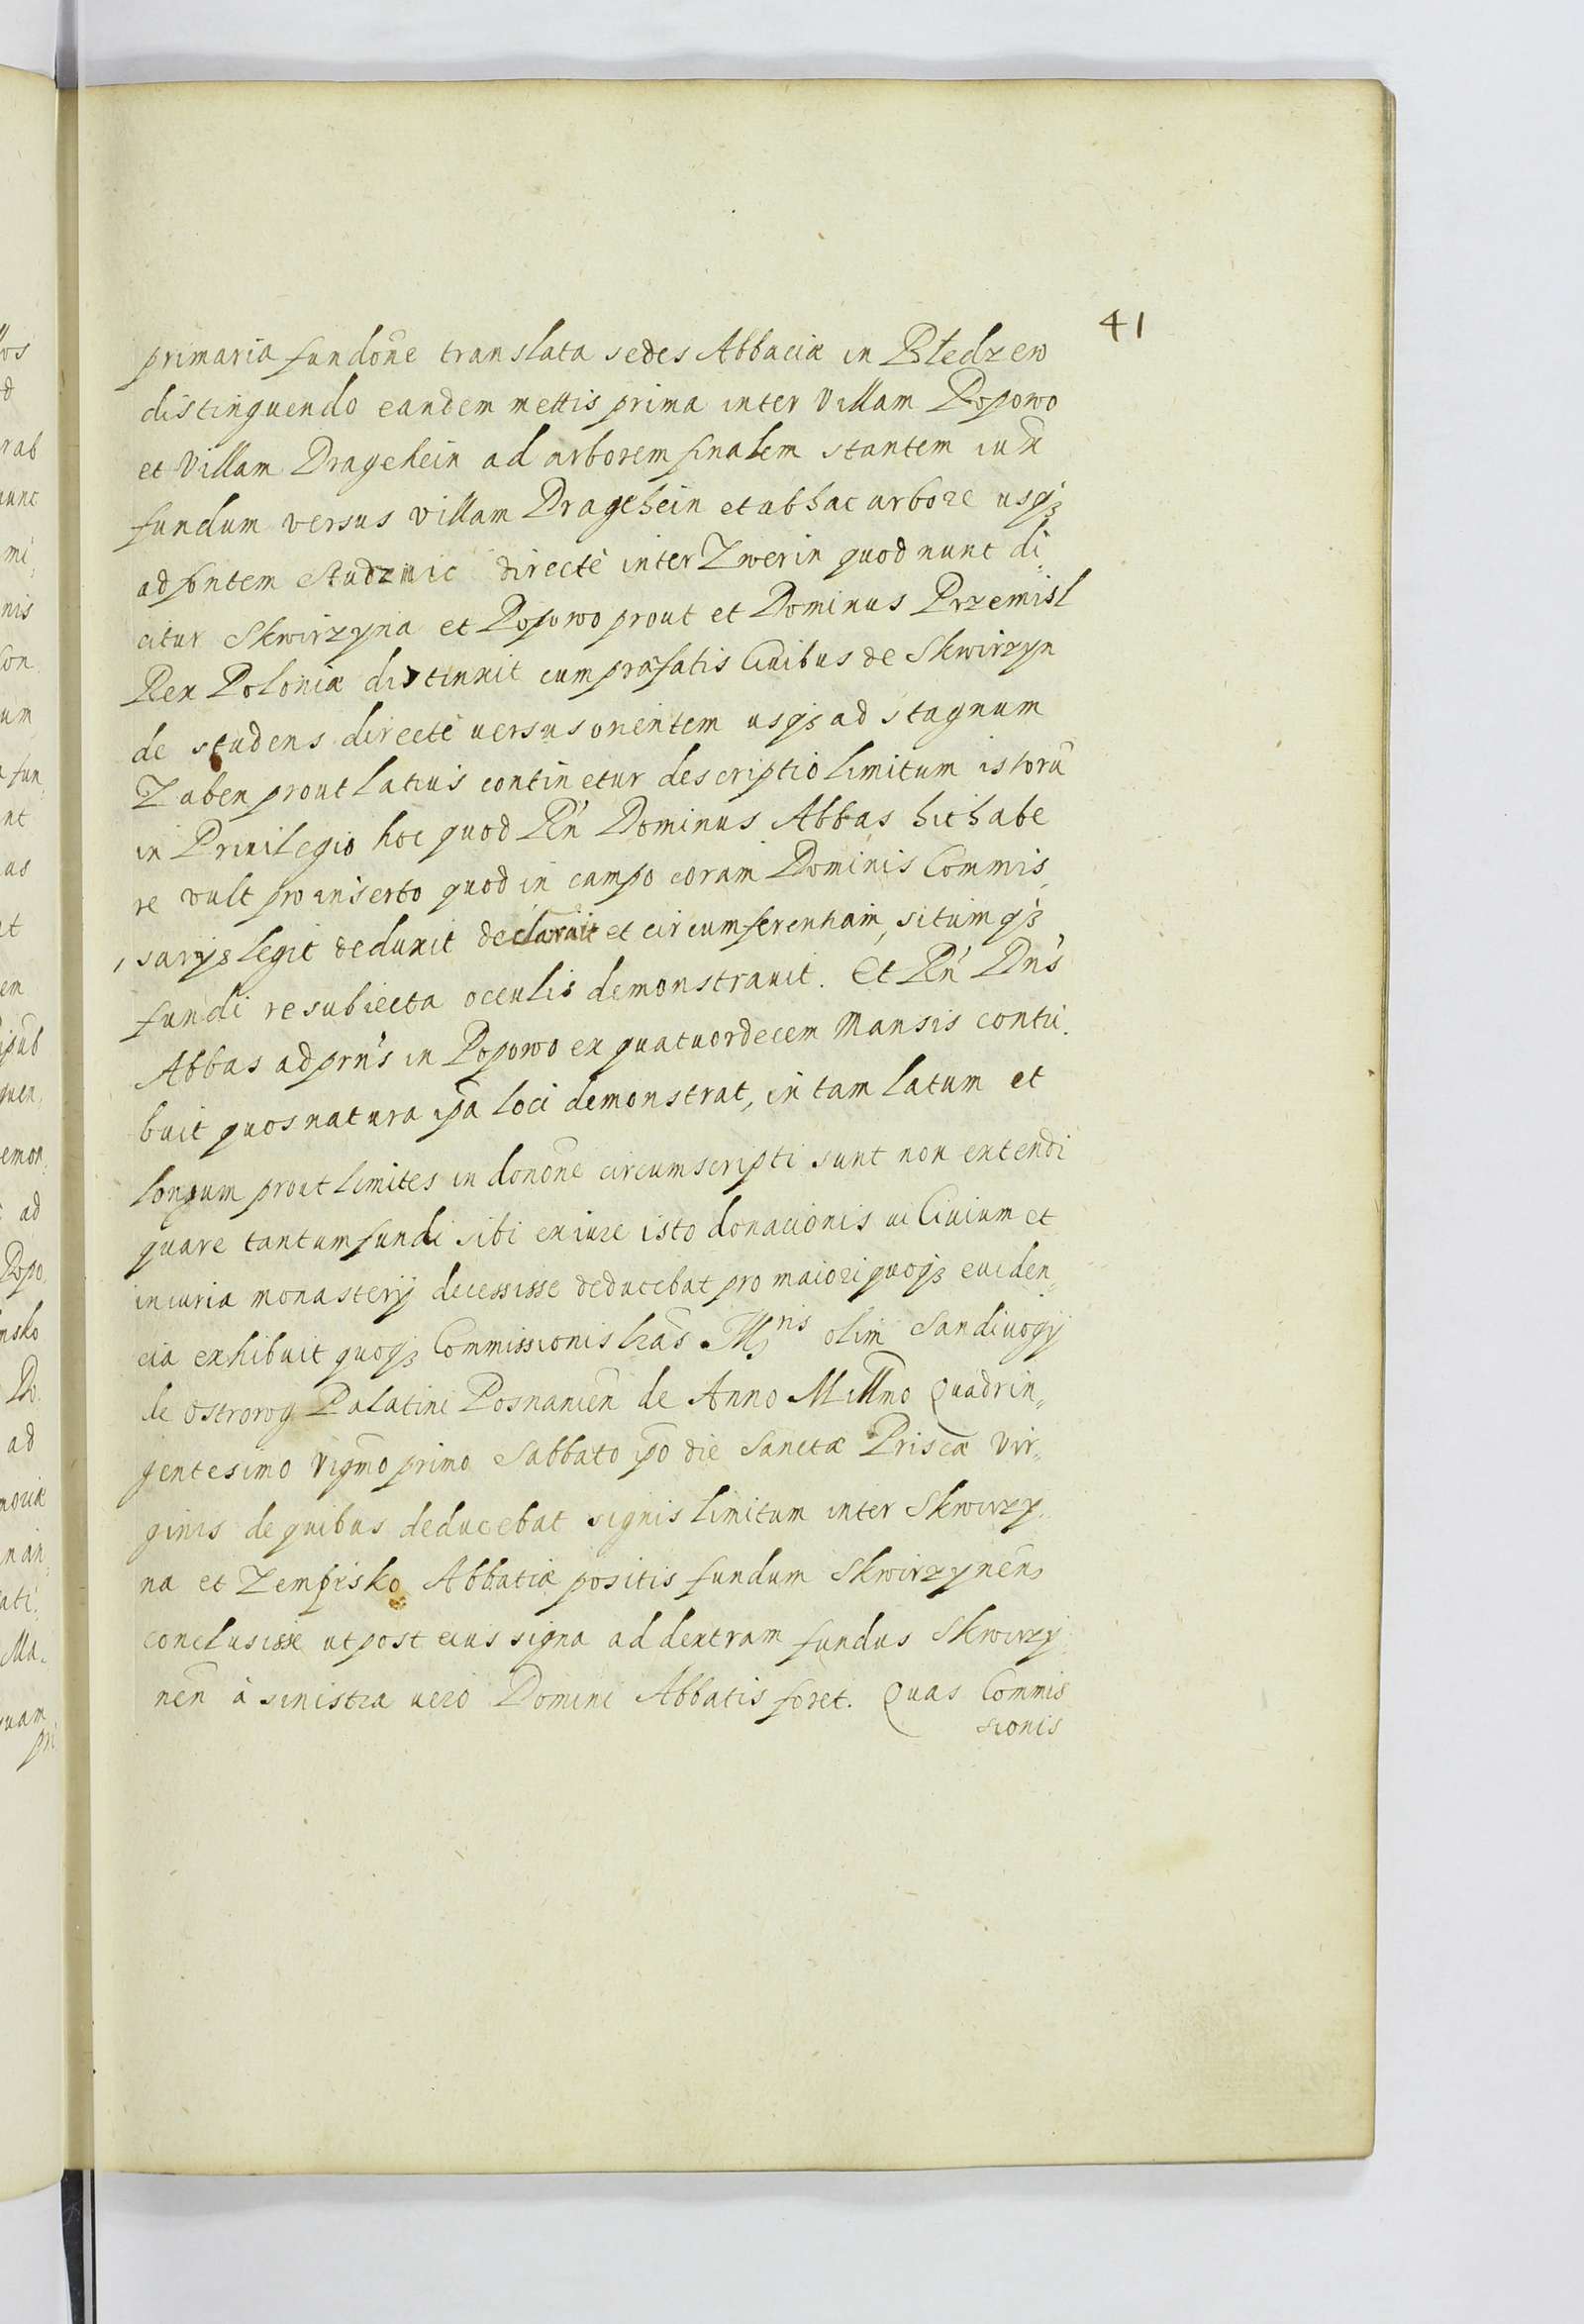 41
primaria fundone translata sedes Abbaciæ in Bledzew
distinguendo eandem mettis prima inter Villam Popowo
et Villam Dragehein ad arborem finalem stantem iux
fundum versus villam Dragehein et ab hac arbore usq3
ad fontem Studznic directè inter Zwerin quod nunc di,,
citur Skwirzyna et Popowo prout et Dominus Przemisl
Rex Poloniæ distinxit cum præfatis Civibus de Skwirzyn
de studens directè versus orientem usq3 ad stagnum
Zaben prout latius continetur descriptio limitum istorũ
in Privilegio hoc quod Rñ Dominus Abbas hic habe
re vult pro inserto quod in campo coram Dominis Commis,
sarijs legit deduxit declaravit et circumferentiam, situmq3
fundi re subiecta occulis demonstravit. Et Rñ Dñs
Abbas ad prñs in Popowo ex quatuordecem Mansis contri,
buit quos natura ipa loci demonstrat, in tam latum et
longum prout limites in donone circumscripti sunt non extendi
quare tantum fundi sibi ex iure isto donacionis vi Civium et
iniuria monasterij decessisse deducebat pro maiori quoq3 eviden,,
cia exhibuit quoq3 Commissionis lrãs Mgnis olim Sandivogij
de Ostrorog Palatini Posnanieñ de Anno Millmo Quadrin,,
gentesimo Vigmo primo Sabbato ipo die Sanctæ Priscæ Vir,,
ginis de quibus deducebat signis limitum inter Skwirzy,
na et Zemprsko Abbatiæ positis fundum Skwirzyneñ
conclusisse ut post eius signa ad dextram fundus Skwirzy
neñ à sinistra vero Domini Abbatis foret. Quas Commis
sionis